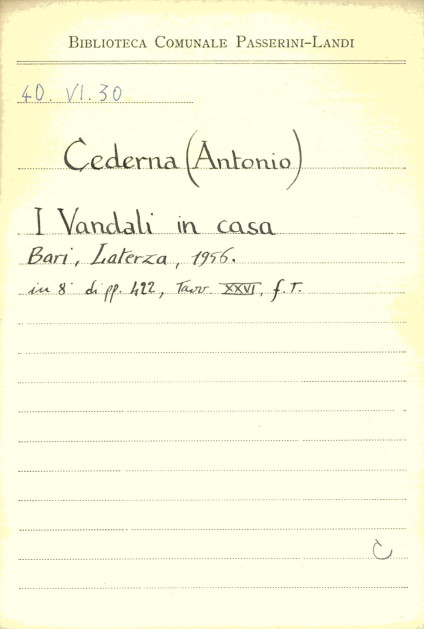 BIBLIOTECA COMUNALE PASSERINI-LANDI
40. VI. 30
Cederna (Antonio)
I Vandali in casa
Bari, Laterza, 1956.
in 8° di pp. 422, Tavv. XXVI, f. T.
C